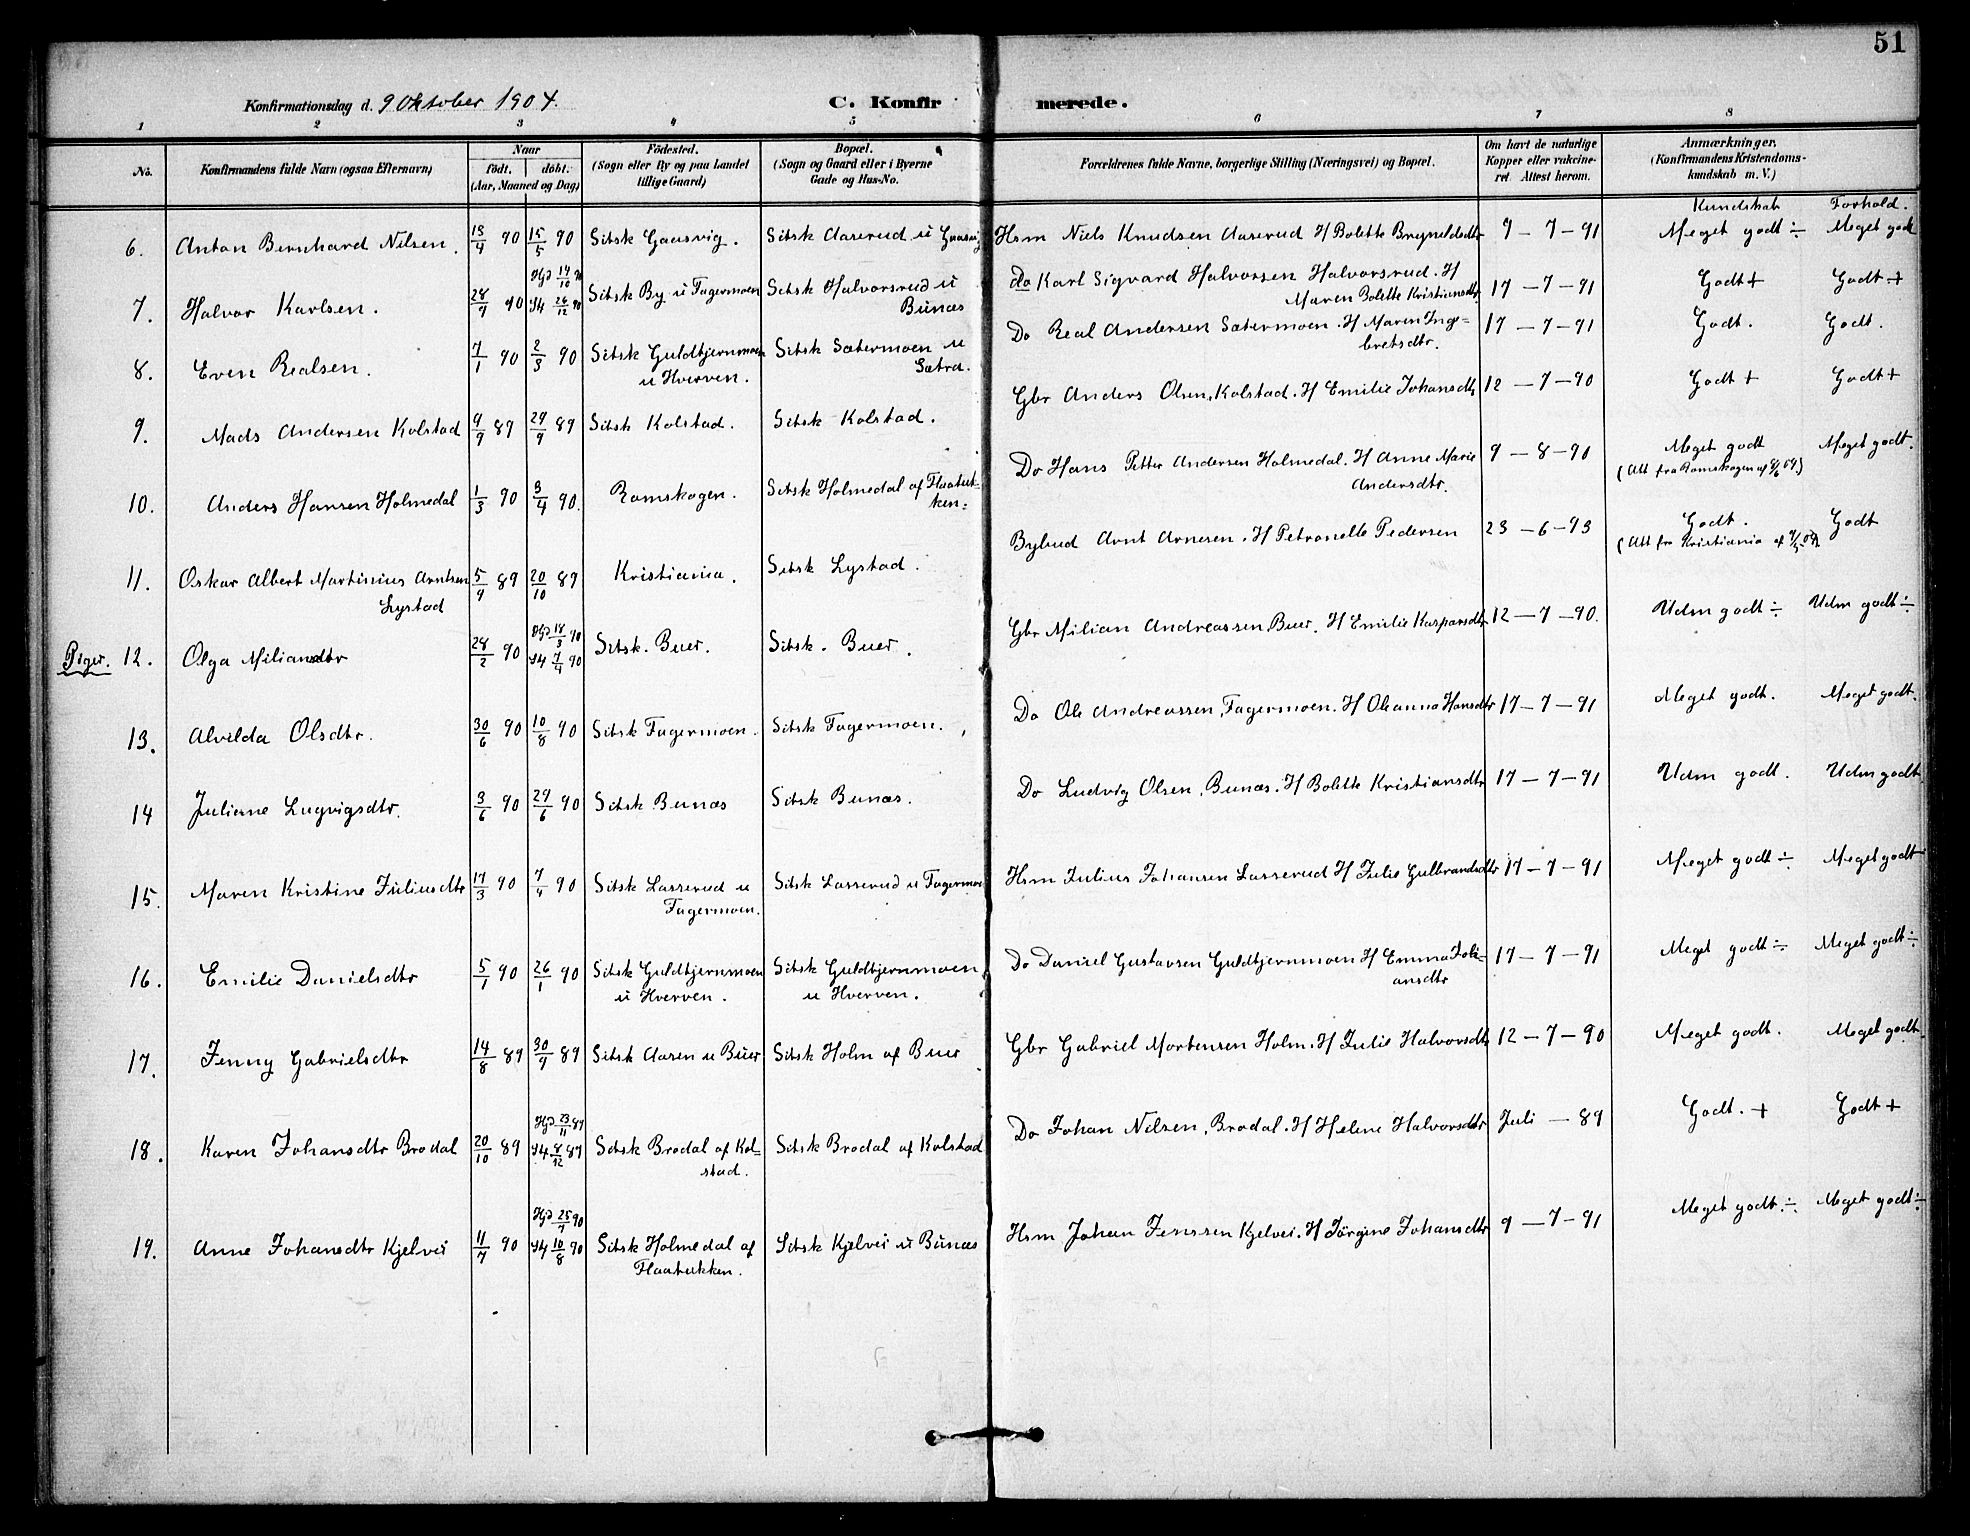 51
Konfirmationsdag d. 9 Oktober 1904. C. Konfirmerede.
1 2 3 4 5 6 7 8
No. Konfirmandens fulde Navn (ogsaa Efternavn) Naar født. døbt. (Aar, Maaned og Dag) Fødested. (Sogn eller By og paa Landet tillige Gaard) Bopæl. (Sogn og Gaard eller i Byerne Gade og Hus-No. Forældrenes fulde Navne, borgerlige Stilling (Næringsvei) og Bopæl. Om havt de naturlige Kopper eller vakcineret Attest herom. Anmærkninger. (Konfirmandens Kristendomskundskab m. V.)
Kundskab Forhold.
6. Anton Bernhard Nilsen. 13/4 90 15/5 90 Sitsk Gaasvig. Sitsk Aaserud u Gaasvig Hsm Niels Knudsen Aaserud H Bolette Brynildsdtr 9-7-91 Meget godt ÷ Meget godt
7. Halvor Karlsen. 28/9 90 Hjd 14/10 90 I4 26/12 90 Sitsk By u Fagermoen Sitsk Halvorsrud u Bunæs Do Karl Sigvard Halvorsen Halvorsrud. H Maren Bolette Kristiansdtr. 17-7-91 Godt + Godt +
8. Even Realsen. 7/1 90 2/3 90 Sitsk Guldtjernmoen u Hverven. Sitsk Sætermoen u Sætra. Do Real Andersen Sætermoen. H Maren Ingebretsdtr. 17-7-91 Godt. Godt.
9. Mads Andersen Kolstad 9/9 89 29/9 89 Sitsk Kolstad. Sitsk Kolstad. Gbr Anders Olsen, Kolstad. H Emilie Johansdtr 12-7-90 Godt + Godt +
10. Anders Hansen Holmedal 1/3 90 3/4 90. Romskogen. Sitsk Holmedal af Flaatukken. Do Hans Petter Andersen Holmedal. H Anne Marie Andersdtr. 9-8-91 Meget godt Meget godt.
(Att fra Romskogen af
11. Oskar Albert Martinius Arntsen Lystad 5/9 89 20/10 89 Kristiania. Sitsk Lystad. Bybud Arnt Arnesen. H Petronelle Pedersen 23-6-93 Godt. Godt
(Att fra Kristiania af
Piger. 12. Olga Miliansdtr 28/2 90 Hjd 18/3 90 I4 7/4 90 Sitsk. Buer. Sitsk. Buer. Gbr Milian Andreassen, Buer. H Emilie Kasparsdtr 12-7-90. Udm godt ÷ Udm godt ÷
13. Alvilda Olsdtr. 30/6 90 10/8 90 Sitsk Fagermoen. Sitsk Fagermoen. Do Ole Andreassen, Fagermoen. H Oleanna Hansdtr 17-7-91 Meget godt. Meget godt.
14 Juliane Lugvigsdtr. 3/6 90 29/6 90 Sitsk Bunæs Sitsk Bunæs. Do Ludvig Olsen, Bunæs. H Bolette Kristiansdtr 17-7-91 Udm godt. Udm godt
15. Maren Kristine Juliusdtr 17/3 90 7/4 90 Sitsk Lasserud u Fagermoen. Sitsk Lasserud u Fagermoen Hsm Julius Johansen Lasserud H Julie Gulbrandsdtr 17-7-91 Meget godt ÷ Meget godt
16. Emilie Danielsdtr 5/1 90 26/1 90 Sitsk Guldtjernmoen u Hverven. Sitsk Guldtjernmoen u Hverven. Do Daniel Gustavsen Guldtjernmoen H Emma Johansdtr 17-7-91 Meget godt ÷ Meget godt ÷
17. Jenny Gabrielsdtr 14/8 89 30/9 89 Sitsk Aasen u Buer Sitsk Holm af Buer Gbr Gabriel Mortensen Holm. H Julie Halvorsdtr 12-7-90 Meget godt. Meget godt
18. Karen Johansdtr Brodal 20/10 89 Hjd 23/11 89 I4 8/12 89 Sitsk Brodal af Kolstad. Sitsk Brodal af Kolstad Do Johan Nilsen, Brodal. H Helene Halvorsdtr Juli - 89 Godt. + Godt +
19. Anne Johansdtr Kjelvei 11/7 90 Hjd 25/7 90 I4 10/8 90 Sitsk Holmedal af Flaatukken. Sitsk Kjelvei u Bunæs Hsm Johan Jenssen Kjelvei. H Jørgine Johansdtr 9-7-91 Meget godt ÷ Meget godt ÷